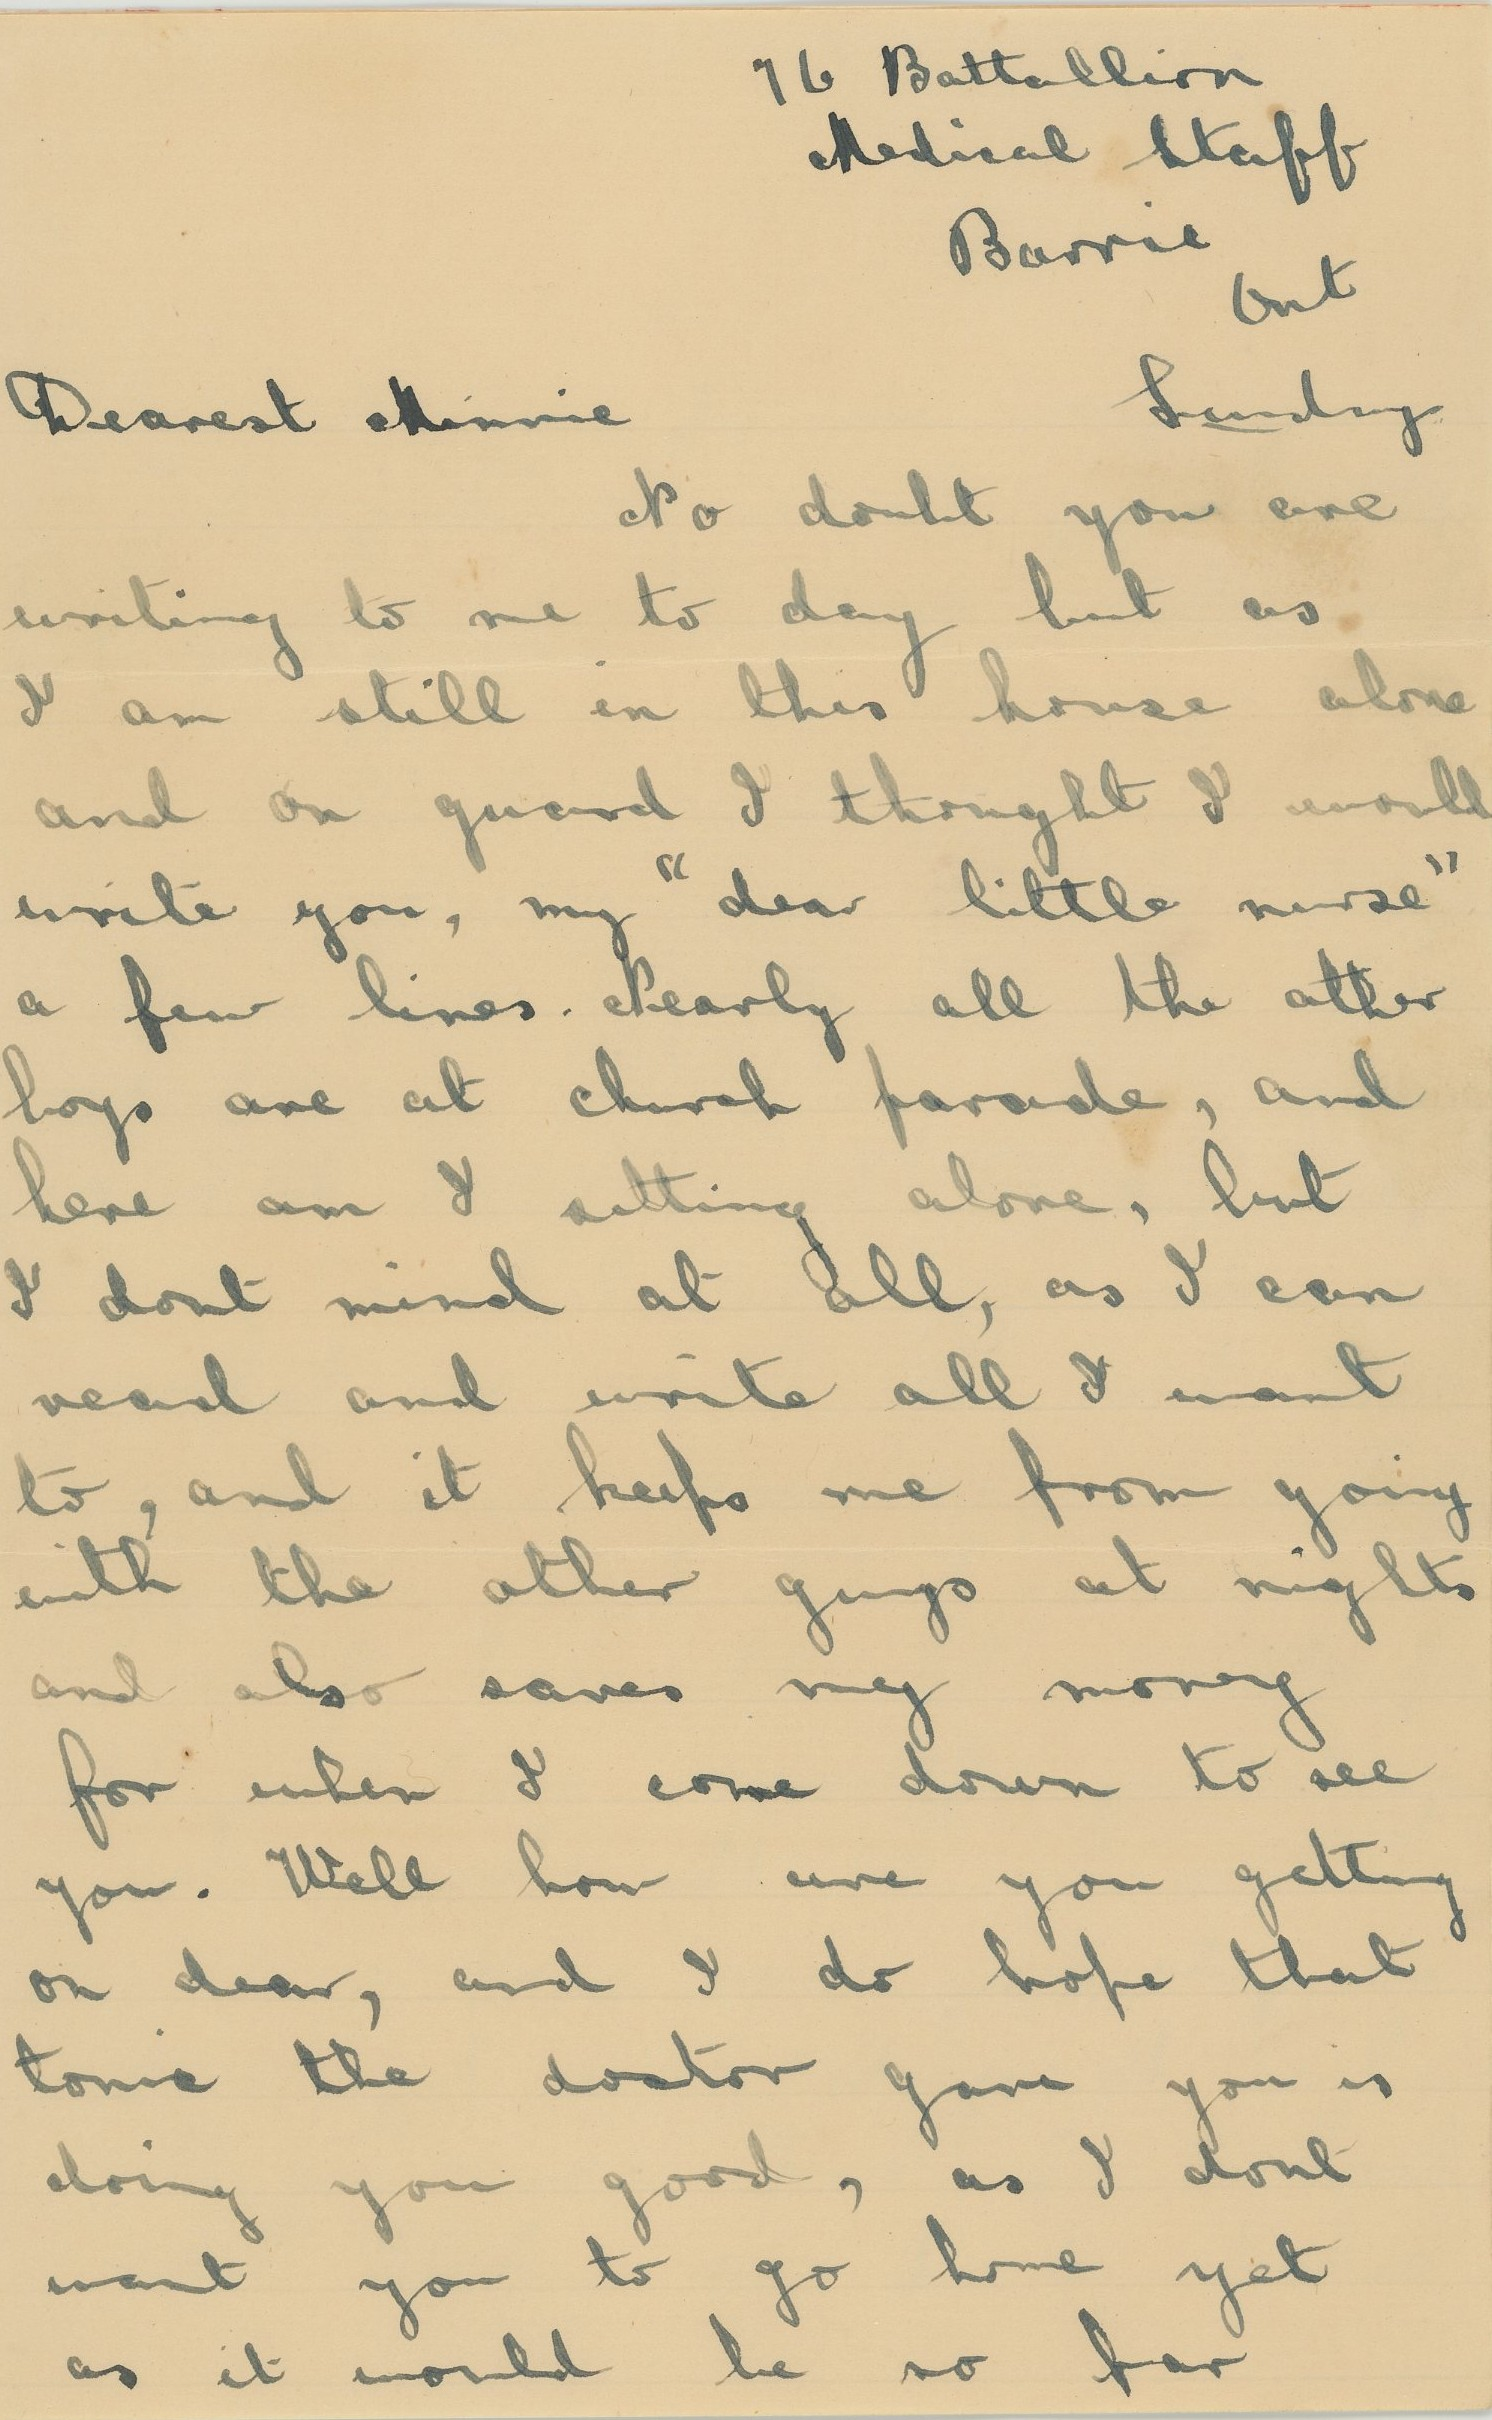 76 Battallion
Medical Staff
Barrie
Ont
Dearest Minnie Sunday
No doubt you are
writing to me to day but as
I am still in this house alone
and on guard I thought I would
write you, my "dear little nurse"
a few lines. Nearly all the other
boys are at church parade, and
here am I sitting alone, but
I dont mind at all, as I can
read and write all I want
to, and it keeps me from going
with the other guys at nights
and also saves my money
for when I come down to see
you. Well how are you getting
on dear, and I do hope that
tonic the doctor gave you is
doing you good, as I dont
want you to go home yet
as it would be so far